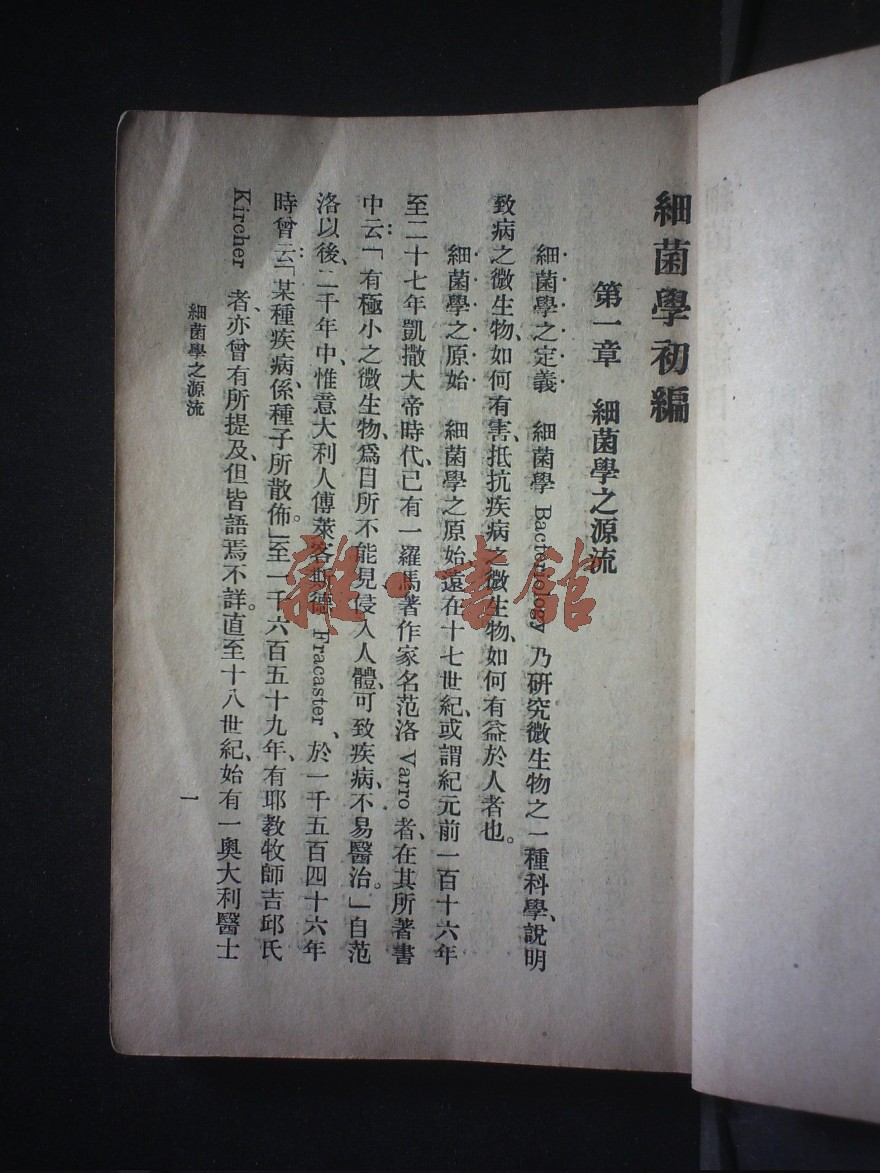 細菌學初編
第一章　細菌學之源流
細菌學之定義　細菌學 Bacteriology 乃研究微生物之一種科學、說明
致病之微生物、如何有害、抵抗疾病之微生物、如何有益於人者也。
細菌學之原始　細菌學之原始、遠在十七世紀、或謂紀元前一百十六年
至二十七年凱撒大帝時代、已有一羅馬著作家名范洛 Varro 者、在其所著書
中云：「有極小之微生物、爲目所不能見、侵入人體、可致疾病、不易醫治。」自范
洛以後、二千年中、惟意大利人傅萊客斯德 Fracaster、於一千五百四十六年
時曾云：「某種疾病、係種子所散佈。」至一千六百五十九年、有耶教牧師吉邱氏
Kircher 者、亦曾有所提及、但皆語焉不詳。直至十八世紀、始有一奧大利醫士
細菌學之源流
一
雜·書館